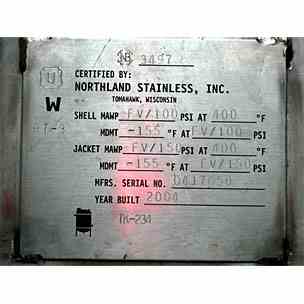 NB 3497
U CERTIFIED BY:
NORTHLAND STAINLESS, INC.
W TOMAHAWK, WISCONSIN
SHELL MAWP FV/100 PSI AT 400 °F
MDMT -155 °F AT FV/100 PSI
JACKET MAWP FV/150 PSI AT 400 °F
MDMT -155 °F AT FV/150 PSI
MFRS. SERIAL NO. D417050
YEAR BUILT 2004
TK-234